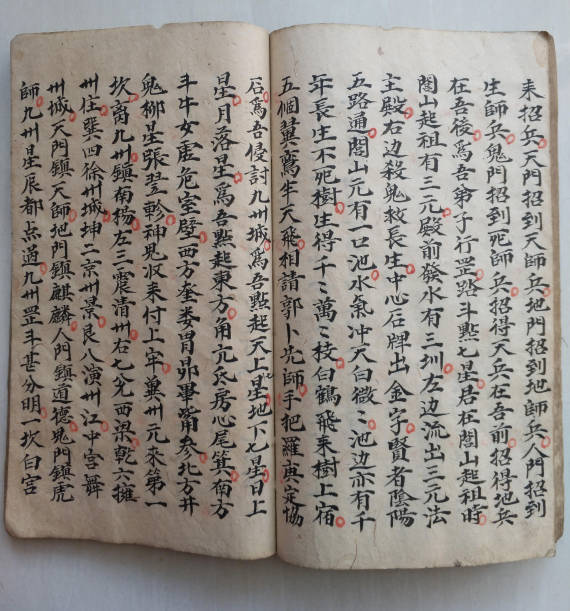 来招兵天門招到天師兵地門招到地師兵人門招到
生師兵鬼門招到死師兵招得天兵在吾前招得地兵
在吾後為吾弟子行罡路斗點七星居在閭山起祖時
閭山起祖有三元殿前發水有三圳左边流出三元法
主殿右边殺鬼救長生中心石牌出金字賢者陰陽
五路通閭山元有一口池水氣冲天白微〻池边亦有千
年長生不死樹生得千〻萬〻枝白鶴飛来樹上宿
五個翼鸞半天飛相請郭卜先師手把羅庚定協
石為吾侵討九州城為吾點起天上星地下七星日上
星月落星為吾點起東方角亢氐房心尾箕南方
斗牛女虛危室壁西方奎娄胃昴畢觜参北方井
鬼柳星張翌軫神見収来付上宰冀州元来第一
坎离九州鎮南揚左三震清州右七兊西梁乹六擁
州住巽四徐州城坤二京州景艮八演州江中宮舞
州城天門鎮天師地門鎮麒麟人門鎮道德鬼門鎮虎
師九州星辰都点過九州罡斗甚分明一坎白宮